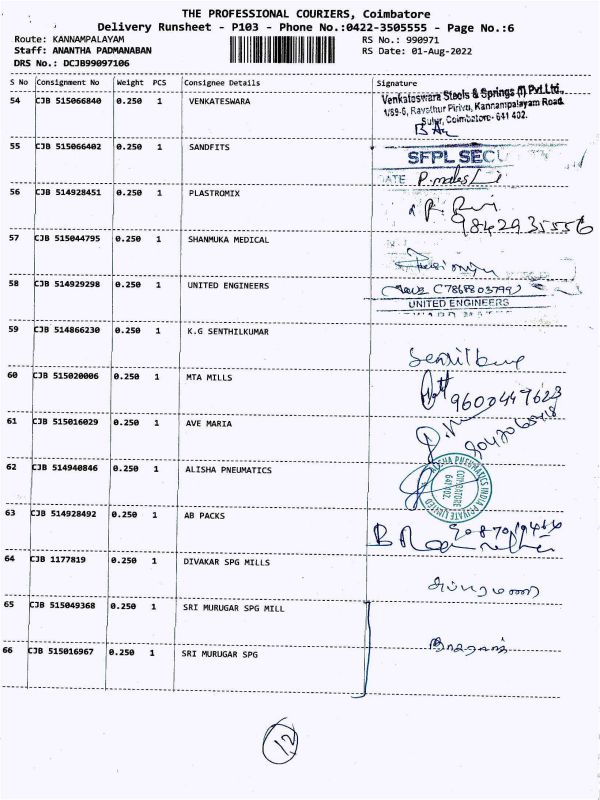 THE PROFESSIONAL COURIERS, Coimbatore
Delivery Runsheet - P103 - Phone No.:0422-3505555 - Page No.:6
Route: KANNAMPALAYAM RS No.: 990971
Staff: ANANTHA PADMANABAN RS Date: 01-Aug-2022
DRS No.: DCJB99097106
S No Consignment No Weight PCS Consignee Details Signature
54 CJB 515066840 0.250 1 VENKATESWARA Venkateswara Steels & Springs (I) Pvt.Ltd.,
1/89-6, Ravathur Pirivu, Kannampalayam Road
Sulur, Coimbatore- 641 402.
55 CJB 515066402 0.250 1 SANDFITS SFPL SECU
DATE
56 CJB 514928451 0.250 1 PLASTROMIX
9842935556
57 CJB 515044795 0.250 1 SHANMUKA MEDICAL
58 CJB 514929298 0.250 1 UNITED ENGINEERS
UNITED ENGINEERS
59 CJB 514866230 0.250 1 K.G SENTHILKUMAR
60 CJB 515020006 0.250 1 MTA MILLS
61 CJB 515016029 0.250 1 AVE MARIA
62 CJB 514940846 0.250 1 ALISHA PNEUMATICS ALISHA PNEUMATICS INDIA PRIVATE LIMITED
COIMBATORE
641 402
63 CJB 514928492 0.250 1 AB PACKS
64 CJB 1177819 0.250 1 DIVAKAR SPG MILLS
65 CJB 515049368 0.250 1 SRI MURUGAR SPG MILL
66 CJB 515016967 0.250 1 SRI MURUGAR SPG
12